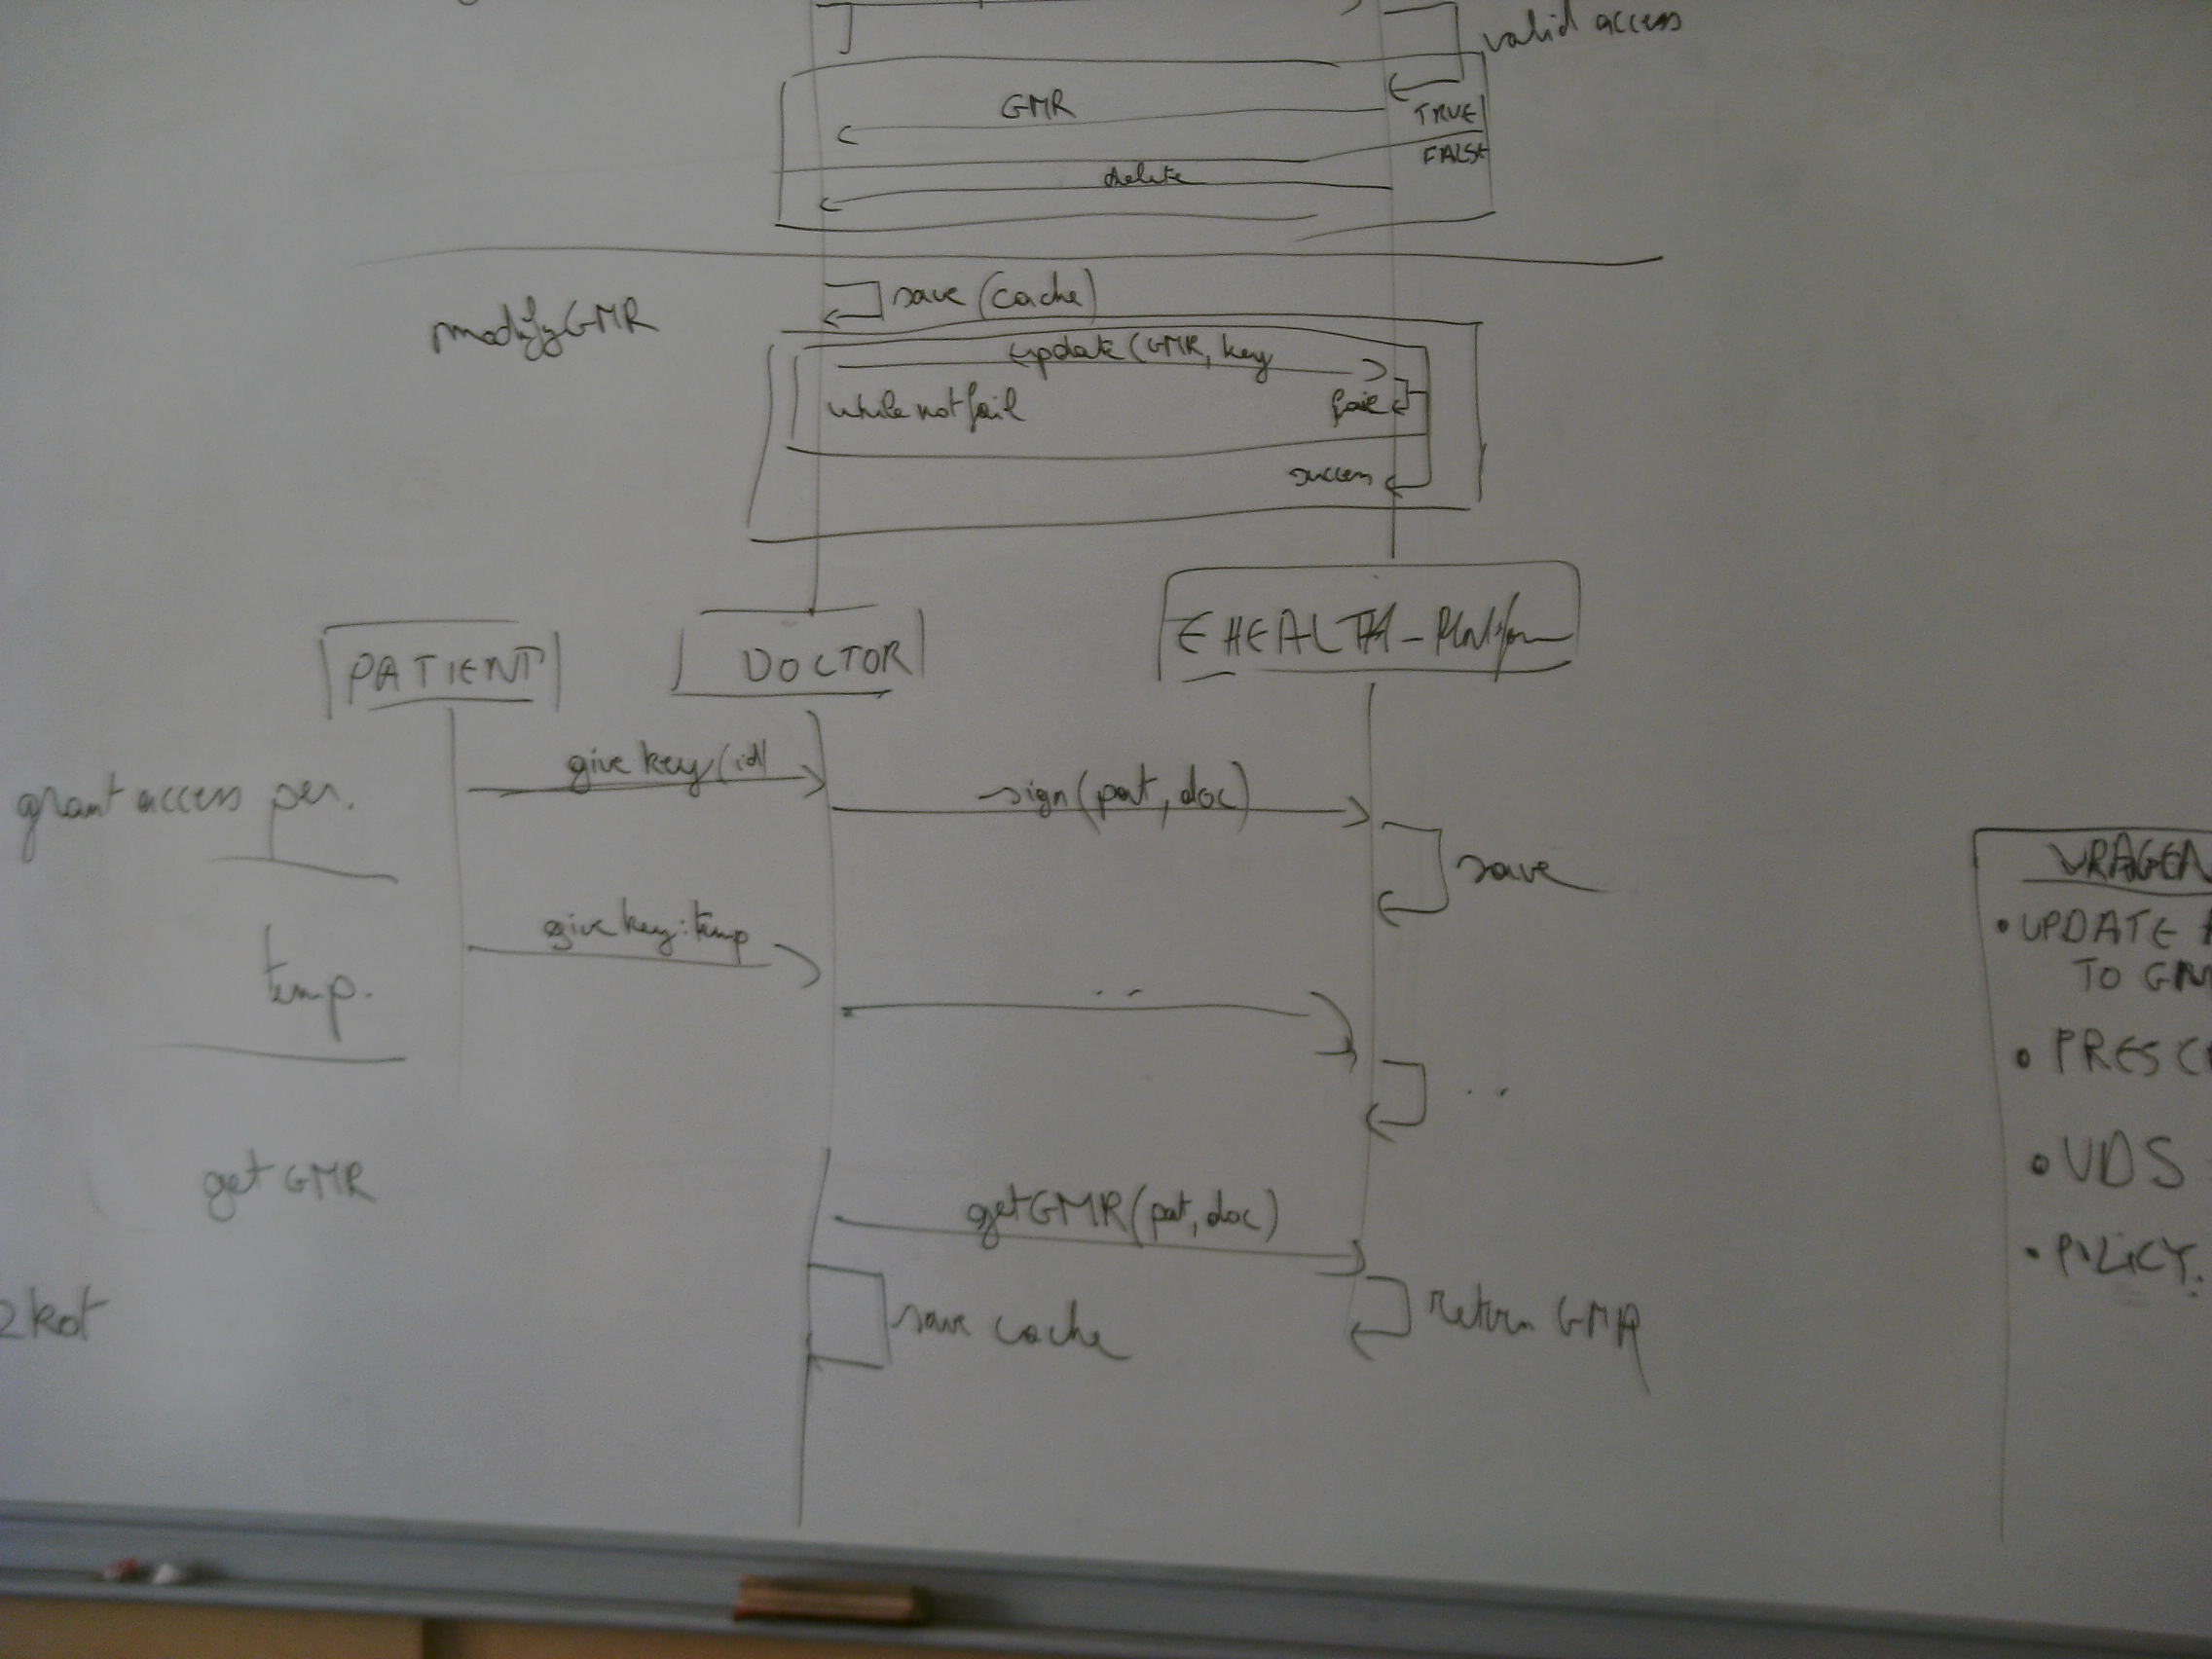 valid access
GMR
TRUE
FALSE
delete
save (cache)
modifyGMR
update (GMR, key
while not fail
fail
success
PATIENT
DOCTOR
EHEALTH-Platform
give key (id)
grant access per.
sign (pat, doc)
save
give key: temp
temp.
..
..
get GMR
getGMR (pat, doc)
save cache
return GMR
2kot
VRAGEN
• UPDATE
TO GM
• PRESC
• VDS
• POLICY.